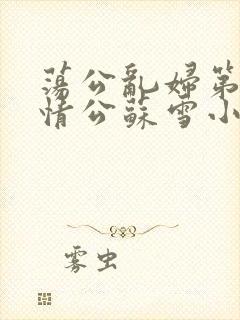 蕩公亂婦第
情公蘇雪小
雾虫